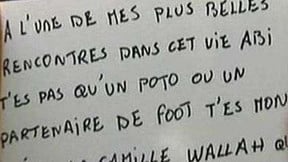 A L'UNE DE MES PLUS BELLES
RENCONTRES DANS CET VIE ABI
T'ES PAS QU'UN POTO OU UN
PARTENAIRE DE FOOT T'ES MON
CAMILLE WALLAH